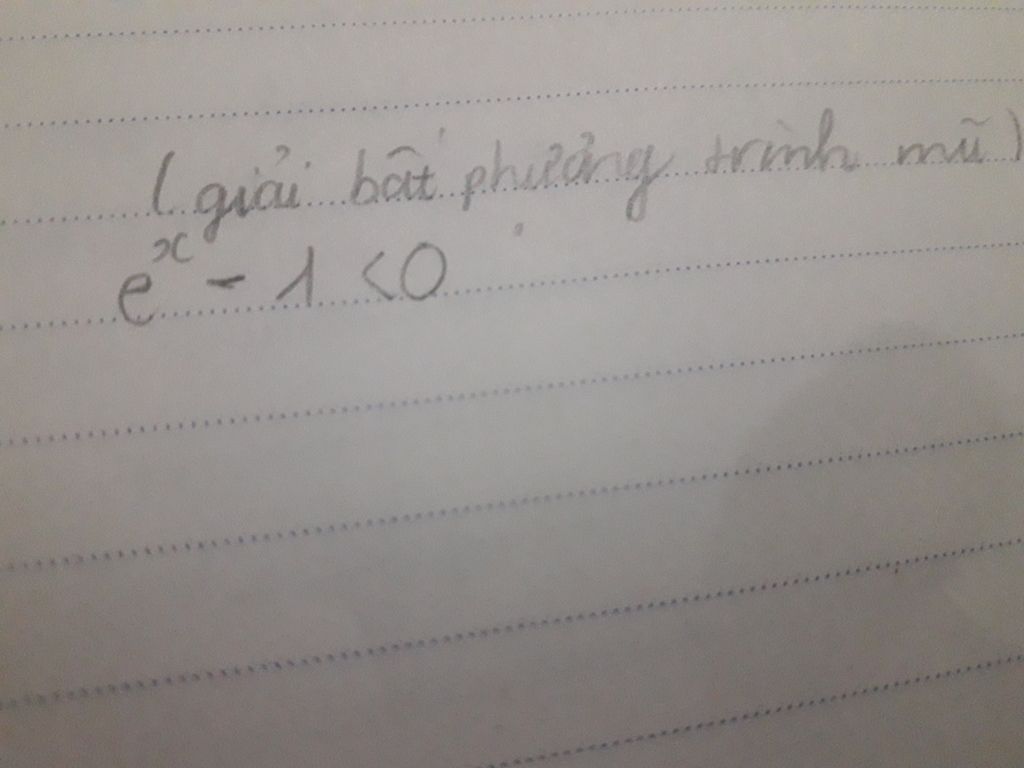 (giải bất phương trình mũ)
eˣ - 1 < 0